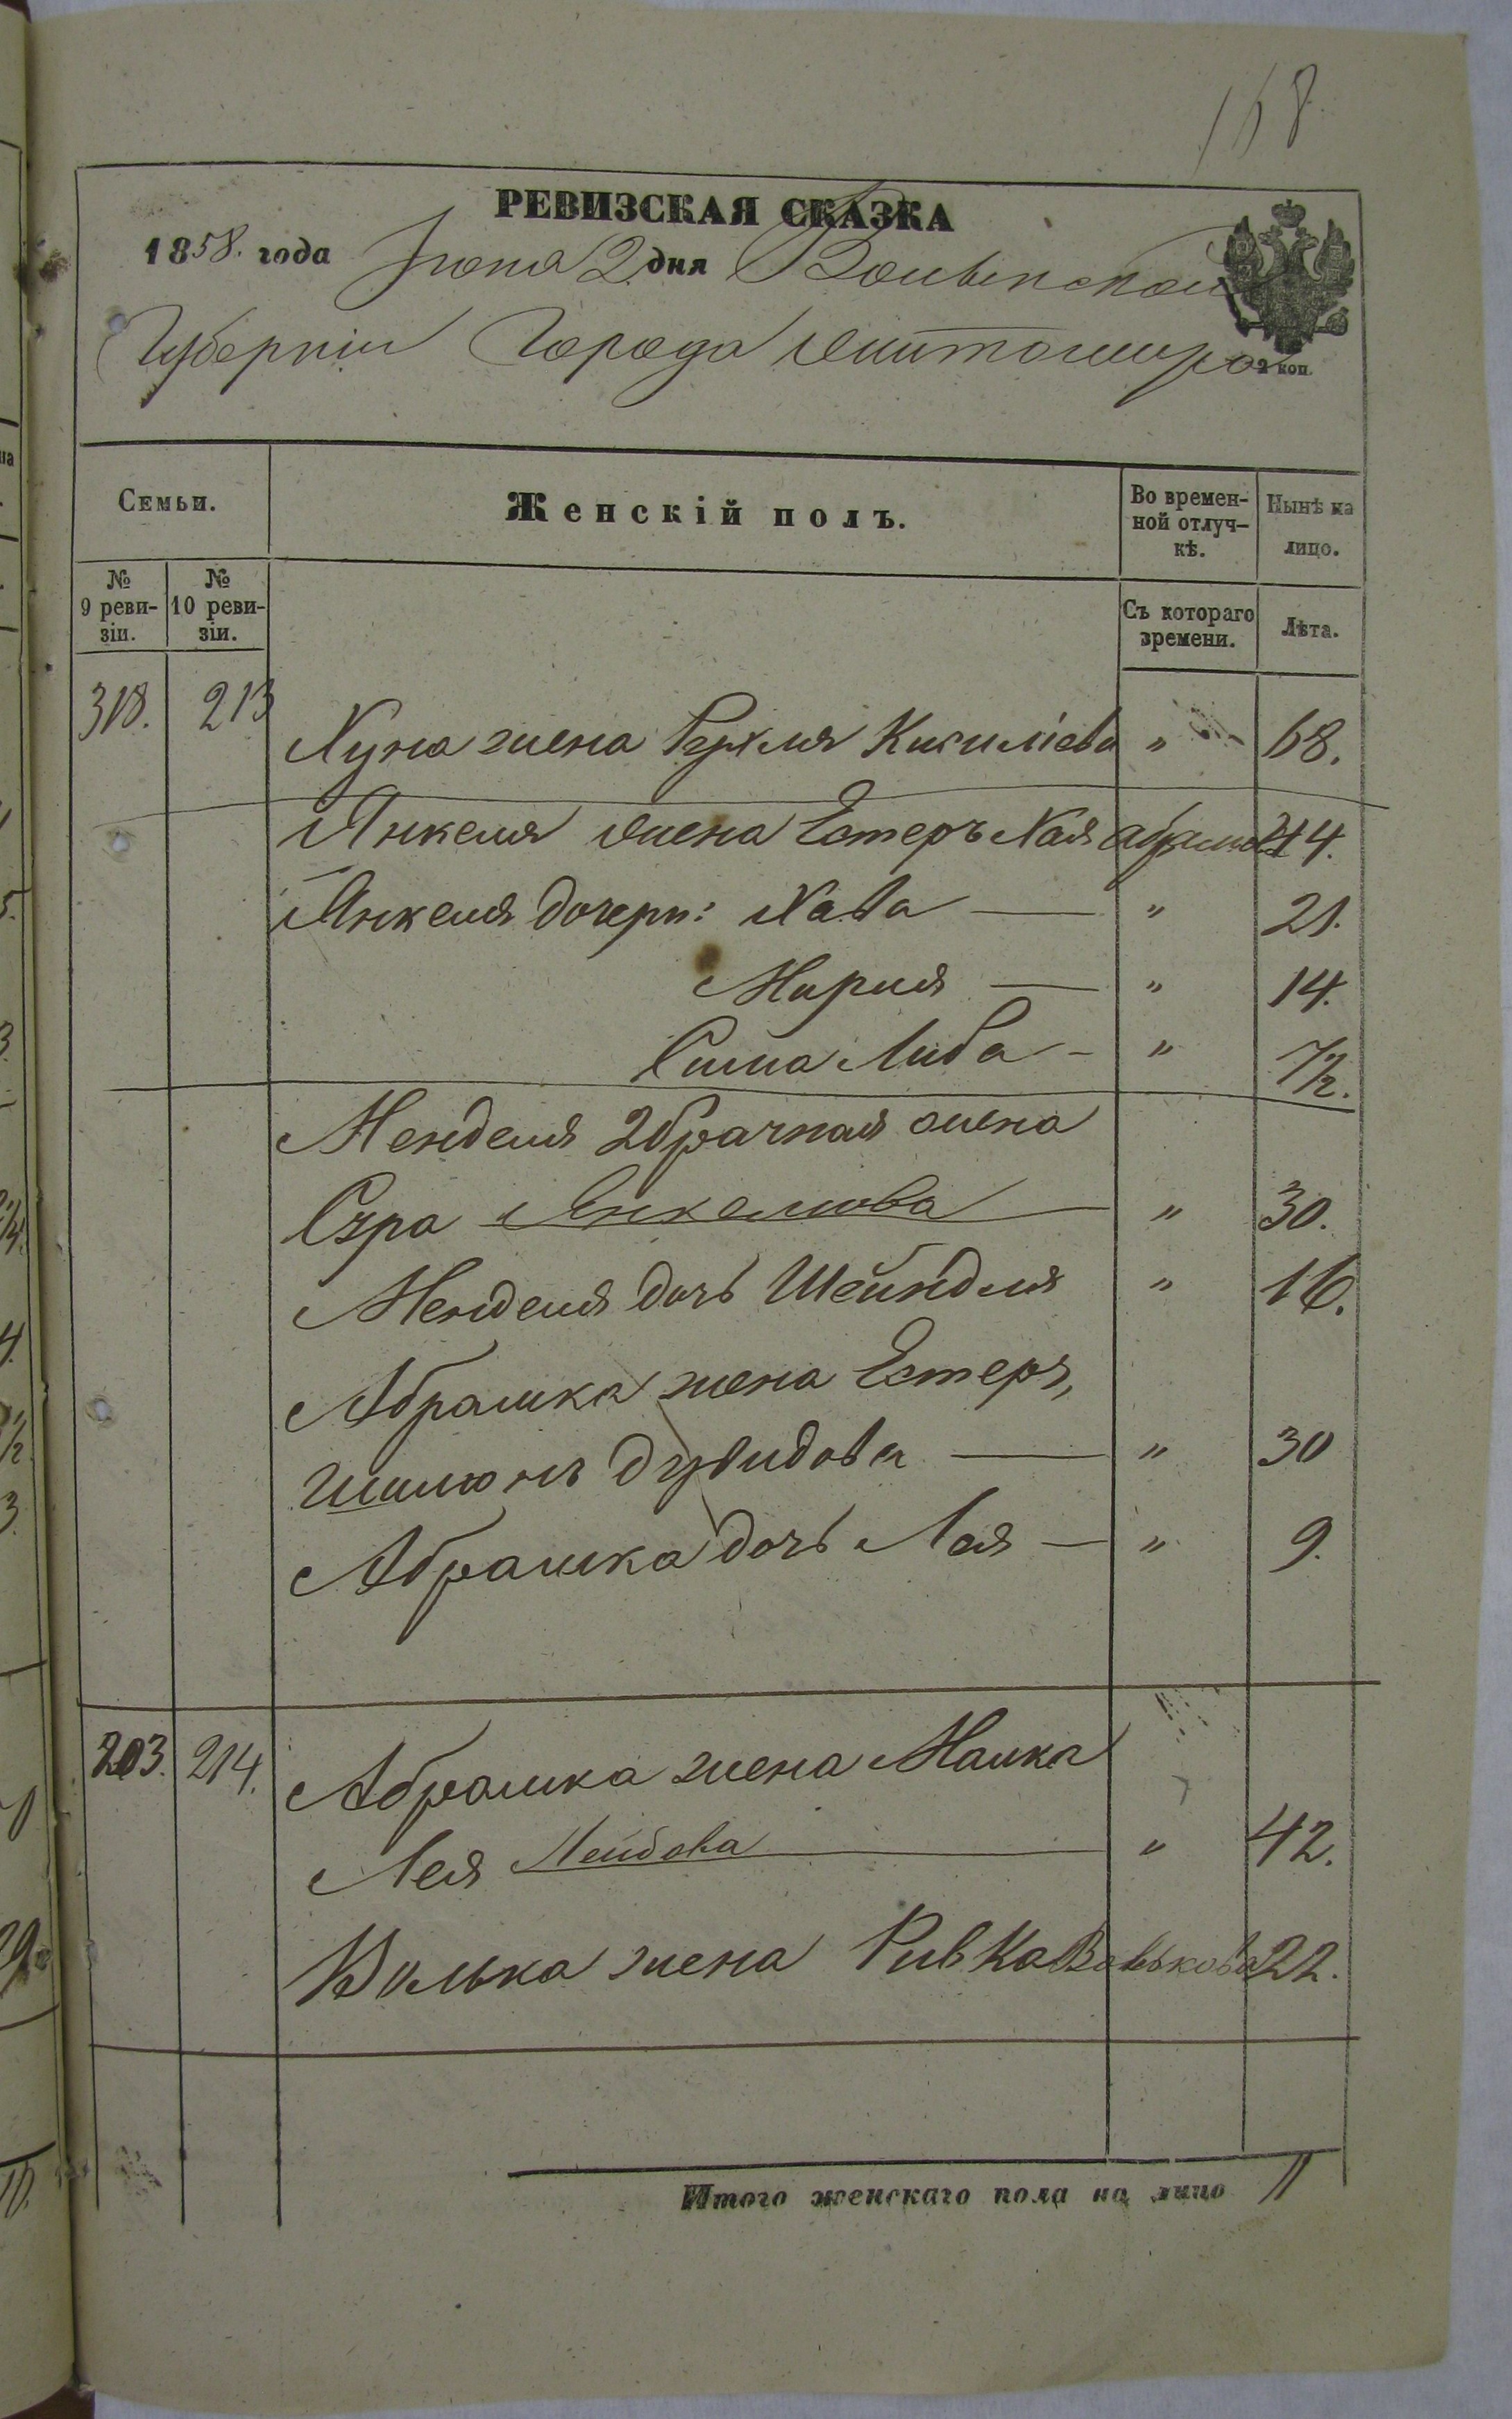 168
РЕВИЗСКАЯ СКАЗКА
1858. года Июня 2 дня Волынской
Губерніи Города Житомира
2 коп.
Семьи.
Женскій полъ.
Во времен-
ной отлуч-
кѣ.
Нынѣ на
лицо.
№
9 реви-
зіи.
№
10 реви-
зіи.
Съ котораго
времени.
Лѣта.
318. 213 Хуна жена Рухля Кисилiева " 68.
Янкеля жена Естеръ Хая 44.
Янкеля дочери: Хава — " 21.
Мириля — " 14.
Сима Либа - " 1/2.
Менделя 2 брачная жена
Сура Янкелиова — " 30.
Менделя дочь Шейндля " 16.
Абрамка жена Естеръ,
Дувидова — " 30
Абрамка дочь Лея — " 9.
203. 214. Абрамка жена Малка
Лея Лейбова " 42.
Волька жена Ривка Волькова 22.
Итого женскаго пола на лицо 11